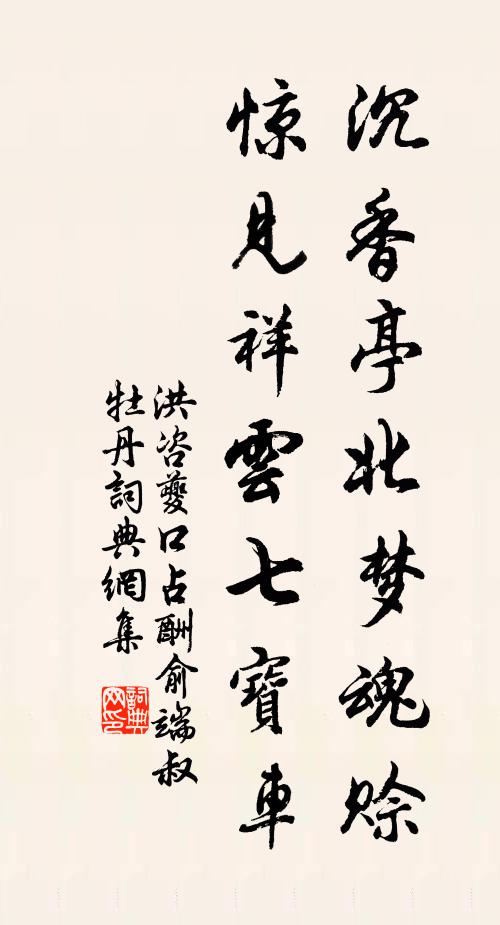 沉香亭北梦魂赊
惊见祥雲七寶車
洪咨夔口占酬俞端叔
牡丹詞典網集
詞典网印